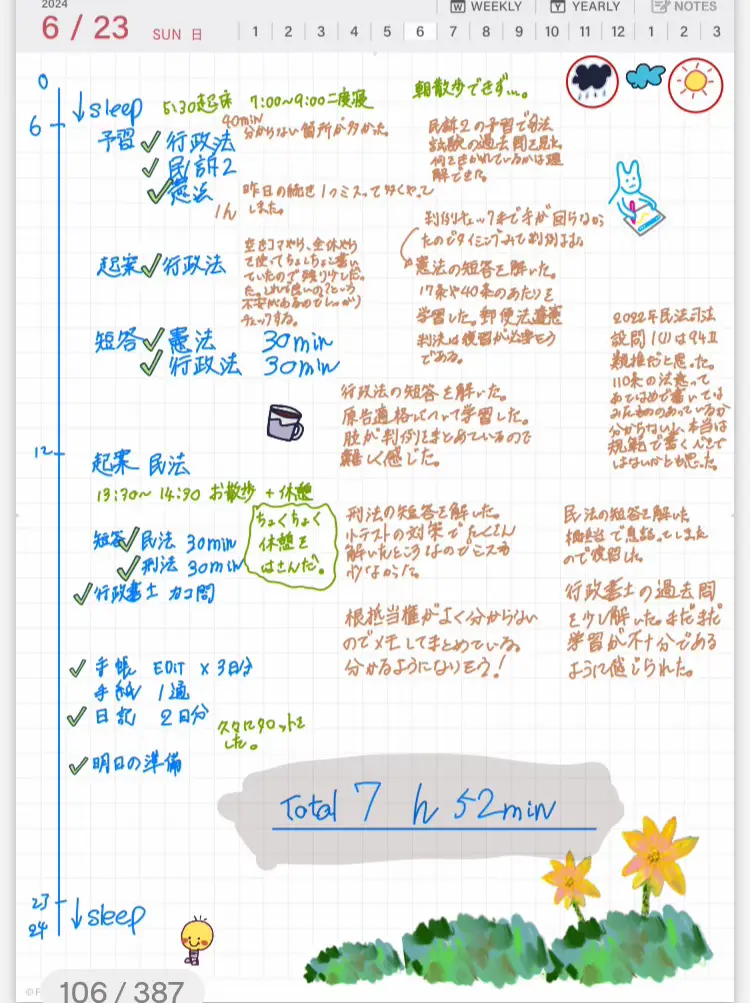 2024
6 / 23 SUN 日
WEEKLY YEARLY NOTES
1 2 3 4 5 6 7 8 9 10 11 12 1 2 3
0
↓sleep
5:30起床 7:00～9:00二度寝
朝散歩できず…。
6
予習 ✓ 行政法
40min
分からない箇所が多かった。
✓ 民訴2
✓ 憲法
1h
昨日の続き1つミスって
しました。
民訴2の予習で司法
試験の過去問を見た。
何をきかれているかは理
解できた。
判例チェックまで手が回らなか
ったのでタイミングみて判例よむ。
起案 ✓ 行政法
空きコマやら、全休やら
で使ってちょこちょこ書い
ていたので残り少しだっ
た。これで良いの?という
不安があるのでしっかり
チェックする。
憲法の短答を解いた。
17条や40条のあたりを
学習した。郵便法違憲
判決は復習が必要そう
である。
短答 ✓ 憲法 30min
✓ 行政法 30min
2022年民法司法
設問1(1)は94Ⅱ
類推だと思った。
110条の法意って
あてはめで書いては
みたもののあっているか
分からないし、本当は
規範で書くべきで
はないかとも思った。
行政法の短答を解いた。
原告適格について学習した。
肢が判例をまとめているので
難しく感じた。
12
起案 民法
13:30～14:30 お散歩 + 休憩
ちょくちょく
休憩を
はさんだ。
短答 ✓ 民法 30min
✓ 刑法 30min
✓ 行政書士 カコ問
刑法の短答を解した。
小テストの対策でたくさん
解いたところなのでミスも
少なかった。
民法の短答を解いた
根抵当で息詰ってしまた
ので復習した。
根抵当権がよく分からない
のでメモしてまとめている。
分かるようになりそう!
行政書士の過去問
を少し解いた。まだまだ
学習が不十分である
ように感じられた。
✓ 手帳 EDIT × 3日分
手紙 1通
✓ 日記 2日分
久々にタロットを
した。
✓ 明日の準備
Total 7 h 52min
23
24
↓sleep
106 / 387